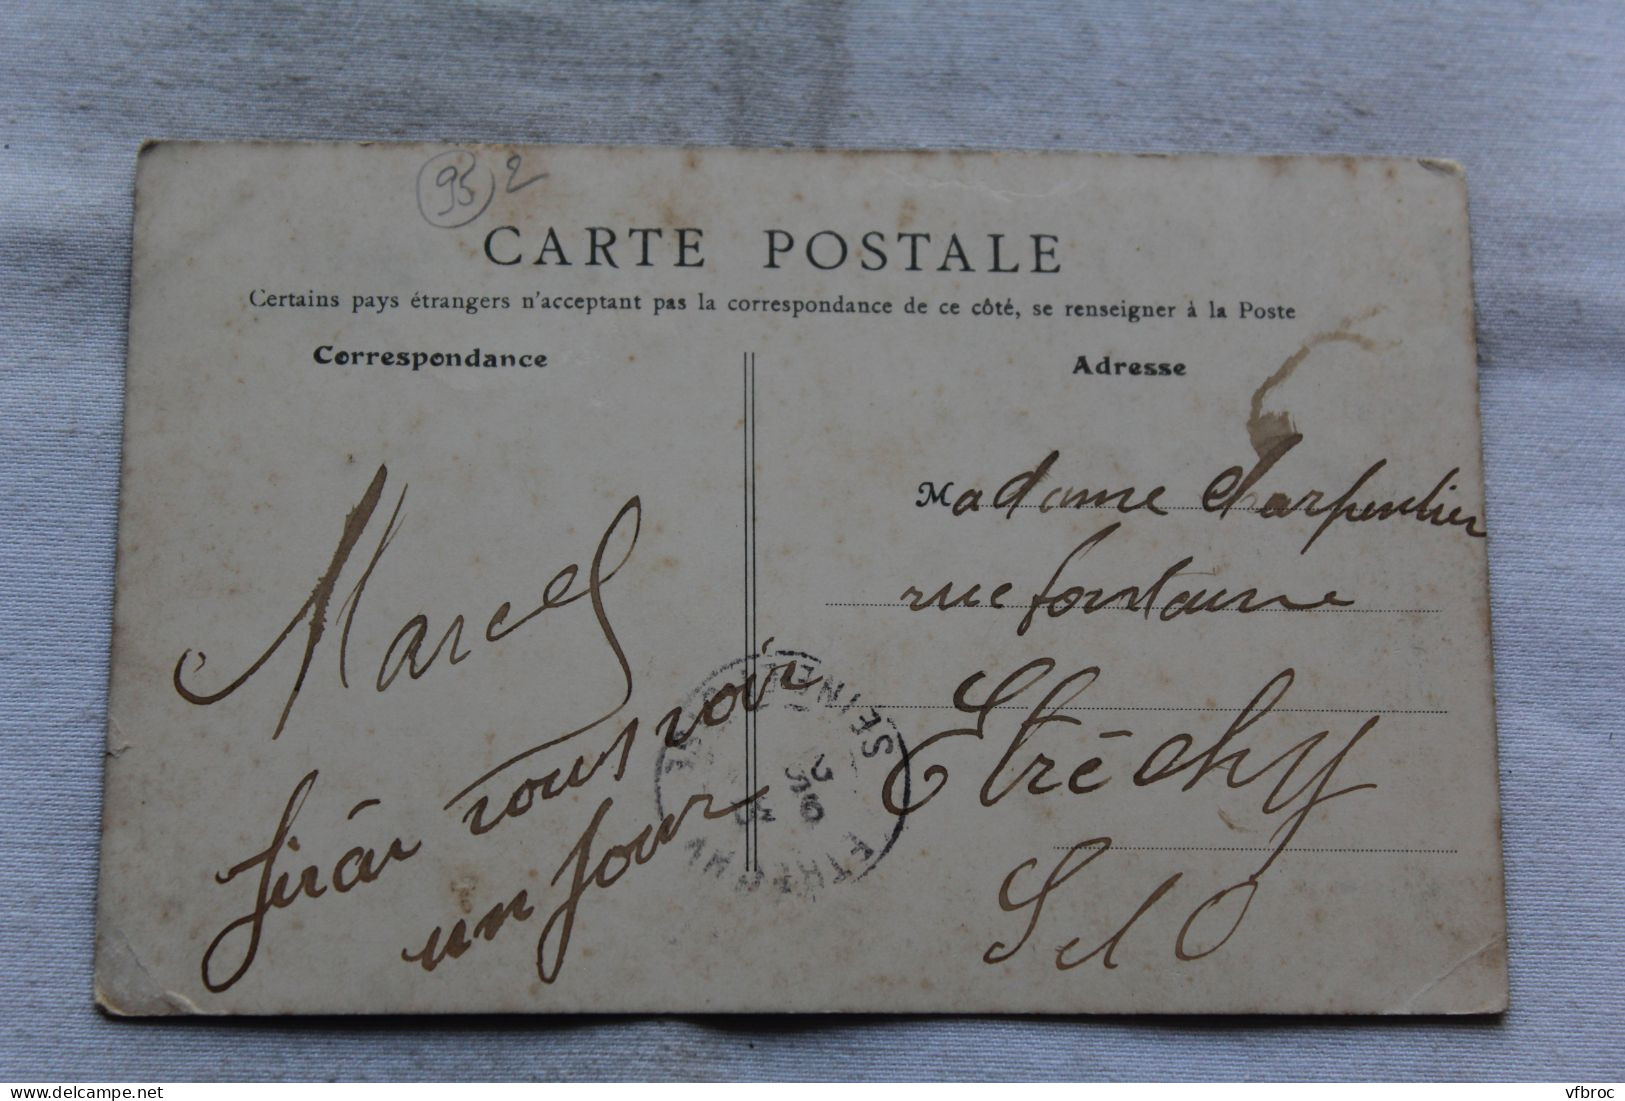 95 2
CARTE POSTALE
Certains pays étrangers n'acceptant pas la correspondance de ce côté, se renseigner à la Poste
Correspondance
Adresse
Marcel
firár vous voir
un jour
Madame Charpentier
rue fontaine
Etréchy
S et O
SEINE
25
9
30
www.delcampe.net
vfbroc